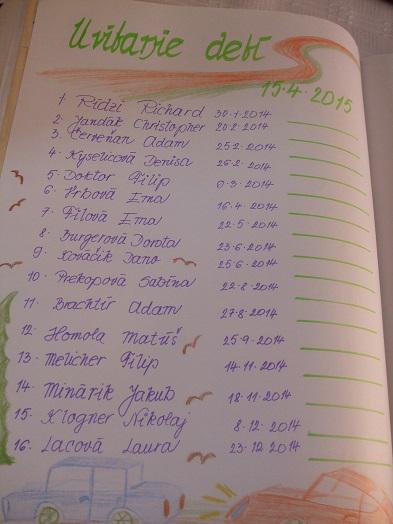 Uvítanie detí
15.4.2015
1. Rídzi Richard 30.1.2014
2. Jandák Christopher 20.2.2014
3. Červeňan Adam 25.2.2014
4. Kyselicová Denisa 26.2.2014
5. Doktor Filip 9.3.2014
6. Vrbová Ema 16.4.2014
7. Filová Ema 22.5.2014
8. Burgerová Dorota 23.6.2014
9. Kováčik Dano 25.6.2014
10. Prekopová Sabína 22.8.2014
11. Brachtír Adam 27.8.2014
12. Homola Matúš 25.9.2014
13. Melicher Filip 14.11.2014
14. Minárik Jakub 18.11.2014
15. Klogner Nikolaj 8.12.2014
16. Lacová Laura 23.12.2014